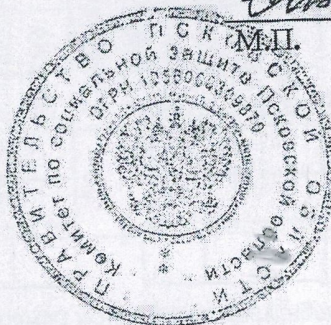 М.П.
ПРАВИТЕЛЬСТВО ПСКОВСКОЙ ОБЛАСТИ
Комитет по социальной защите Псковской области
ОГРН